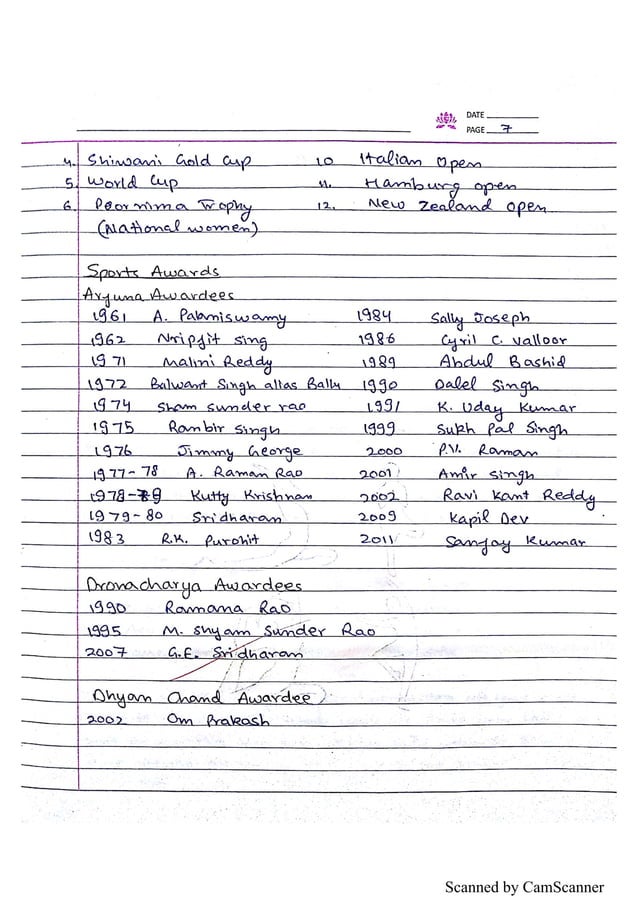 DATE
PAGE 7
4. Shiwani Gold Cup 10 Italian Open
5. World Cup 11. Hamburg open
6. Poornima Trophy 12. New Zealand Open
(National women)
Sports Awards
Arjuna Awardees
1961 A. Palaniswamy 1984 Sally Joseph
1962 Nripjit Sing 1986 Cyril C. Valloor
1971 Malini Reddy 1989 Abdul Bashid
1972 Balwant Singh allas Ballu 1990 Dalel Singh
1974 Sham Sunder rao 1991 K. Uday Kumar
1975 Ranbir Singh 1999 Sukh Pal Singh
1976 Jimmy George 2000 P.V. Raman
1977-78 A. Raman Rao 2001 Amir Singh
1978-79 Kutty Krishnan 2002 Ravi Kant Reddy
1979-80 Sridharan 2009 Kapil Dev
1983 R.K. Purohit 2011 Sanjay Kumar
Dronacharya Awardees
1990 Ramana Rao
1995 M. Shyam Sunder Rao
2007 G.E. Sridharan
Dhyan Chand Awardee
2002 Om Prakash
Scanned by CamScanner